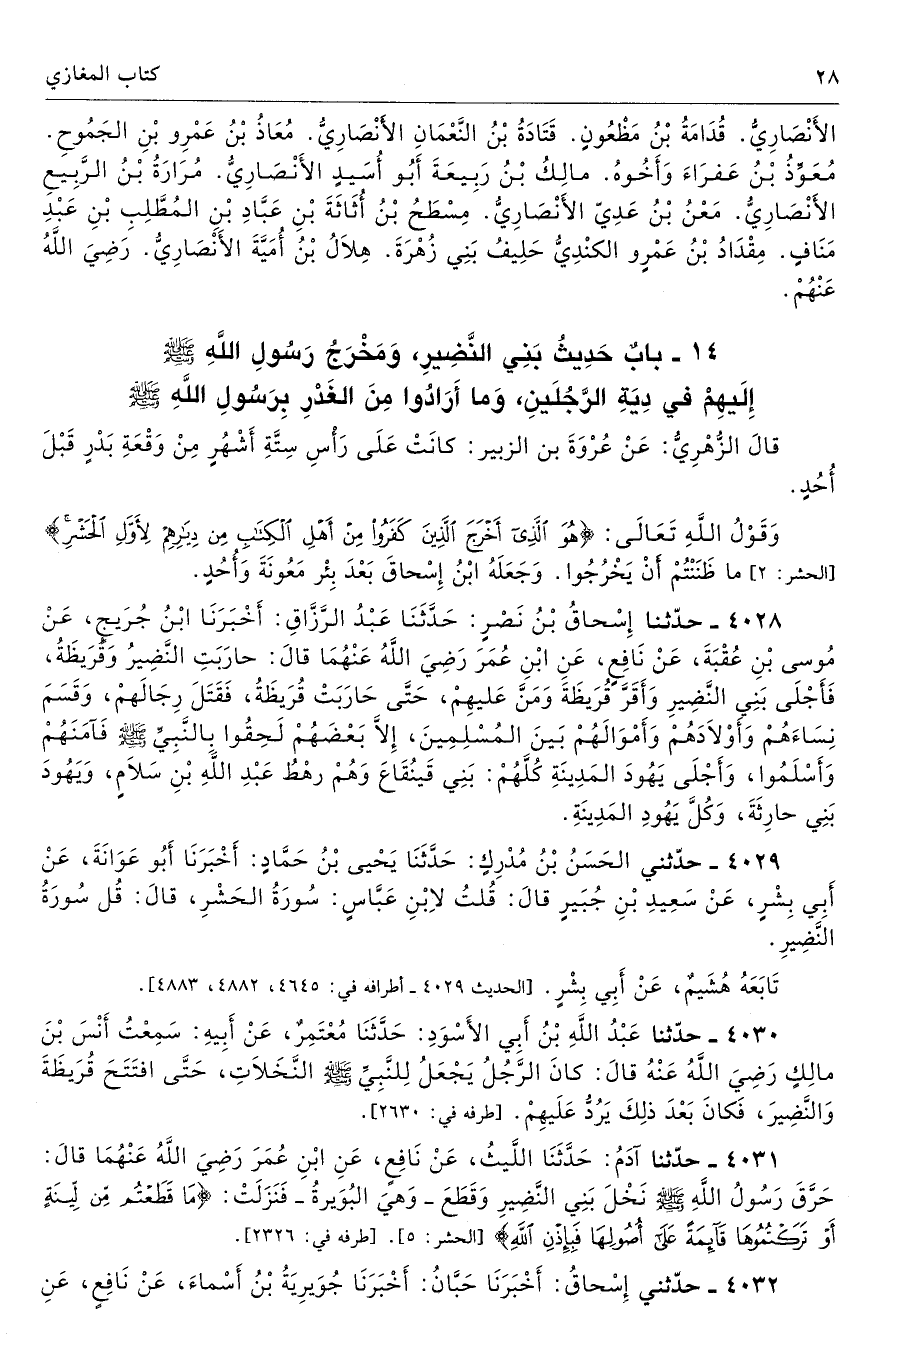 ٢٨ كتاب المغازي
الأَنْصَارِيُّ. قُدَامَةُ بْنُ مَظْعُونٍ. قَتَادَةُ بْنُ النُّعْمَانِ الأَنْصَارِيُّ. مُعَاذُ بْنُ عَمْرِو بْنِ الجَمُوحِ.
مُعَوِّذُ بْنُ عَفرَاءَ وَأَخُوهُ. مالِكُ بْنُ رَبِيعَةَ أَبُو أُسَيدٍ الأَنْصَارِيُّ. مُرَارَةُ بْنُ الرَّبِيعِ
الأَنْصَارِيُّ. مَعْنُ بْنُ عَدِيٍّ الأَنْصَارِيُّ. مِسْطَحُ بْنُ أُثَاثَةَ بْنِ عَبَّادِ بْنِ المُطَّلِبِ بْنِ عَبْدِ
مَنَافٍ. مِقْدَادُ بْنُ عَمْرٍو الكنْدِيُّ حَلِيفُ بَنِي زُهْرَةَ. هِلاَلُ بْنُ أُمَيَّةَ الأَنْصَارِيُّ. رَضِيَ اللَّهُ
عَنْهُمْ.
١٤ - بابُ حَدِيثُ بَنِي النَّضِيرِ، وَمَخْرَجُ رَسُولِ اللَّهِ ﷺ
إِلَيهِمْ في دِيَةِ الرَّجُلَينِ، وَما أَرَادُوا مِنَ الغَدْرِ بِرَسُولِ اللَّهِ ﷺ
قالَ الزُّهْرِيُّ: عَنْ عُرْوَةَ بن الزبير: كانَتْ عَلَى رَأْسِ سِتَّةِ أَشْهُرٍ مِنْ وَقْعَةِ بَدْرٍ قَبْلَ
أُحُدٍ.
وَقَوْلُ اللَّهِ تَعَالَى: ﴿هُوَ ٱلَّذِىٓ أَخْرَجَ ٱلَّذِينَ كَفَرُوا۟ مِنْ أَهْلِ ٱلْكِتَٰبِ مِن دِيَٰرِهِمْ لِأَوَّلِ ٱلْحَشْرِ ۚ﴾
[الحشر: ٢] ما ظَنَنْتُمْ أَنْ يَخْرُجُوا. وَجَعَلَهُ ابْنُ إِسْحاقَ بَعْدَ بِئْرِ مَعُونَةَ وَأُحُدٍ.
٤٠٢٨ - حدّثنا إِسْحاقُ بْنُ نَصْرٍ: حَدَّثَنَا عَبْدُ الرَّزَّاقِ: أَخْبَرَنَا ابْنُ جُرَيجٍ، عَنْ
مُوسى بْنِ عُقْبَةَ، عَنْ نَافِعٍ، عَنِ ابْنِ عُمَرَ رَضِيَ اللَّهُ عَنْهُمَا قالَ: حارَبَتِ النَّضِيرُ وَقُرَيظَةُ،
فَأَجْلَى بَنِي النَّضِيرِ وَأَقَرَّ قُرَيظَةَ وَمَنَّ عَلَيهِمْ، حَتَّى حَارَبَتْ قُرَيظَةُ، فَقَتَلَ رِجَالَهُمْ، وَقَسَمَ
نِسَاءَهُمْ وَأَوْلاَدَهُمْ وَأَمْوَالَهُمْ بَينَ المُسْلِمِينَ، إِلاَّ بَعْضَهُمْ لَحِقُوا بِالنَّبِيِّ ﷺ فَآمَنَهُمْ
وَأَسْلَمُوا، وَأَجْلَى يَهُودَ المَدِينَةِ كُلَّهُمْ: بَنِي قَينُقَاعَ وَهُمْ رهْطُ عَبْدِ اللَّهِ بْنِ سَلاَمٍ، وَيَهُودَ
بَنِي حارِثَةَ، وَكُلَّ يَهُودِ المَدِينَةِ.
٤٠٢٩ - حدّثني الحَسَنُ بْنُ مُدْرِكٍ: حَدَّثَنَا يَحْيى بْنُ حَمَّادٍ: أَخْبَرَنَا أَبُو عَوَانَةَ، عَنْ
أَبِي بِشْرٍ، عَنْ سَعِيدِ بْنِ جُبَيرٍ قالَ: قُلتُ لاِبْنِ عَبَّاسٍ: سُورَةُ الحَشْرِ، قالَ: قُل سُورَةُ
النَّضِيرِ.
تَابَعَهُ هُشَيمٌ، عَنْ أَبِي بِشْرٍ. [الحديث ٤٠٢٩ - أطرافه في: ٤٦٤٥، ٤٨٨٢، ٤٨٨٣].
٤٠٣٠ - حدّثنا عَبْدُ اللَّهِ بْنُ أَبِي الأَسْوَدِ: حَدَّثَنَا مُعْتَمِرٌ، عَنْ أَبِيهِ: سَمِعْتُ أَنَسَ بْنَ
مالِكٍ رَضِيَ اللَّهُ عَنْهُ قالَ: كانَ الرَّجُلُ يَجْعَلُ لِلنَّبِيِّ ﷺ النَّخَلاَتِ، حَتَّى افتَتَحَ قُرَيظَةَ
وَالنَّضِيرَ، فَكانَ بَعْدَ ذلِكَ يَرُدُّ عَلَيهِمْ. [طرفه في: ٢٦٣٠].
٤٠٣١ - حدّثنا آدَمُ: حَدَّثَنَا اللَّيثُ، عَنْ نَافِعٍ، عَنِ ابْنِ عُمَرَ رَضِيَ اللَّهُ عَنْهُمَا قالَ:
حَرَّقَ رَسُولُ اللَّهِ ﷺ نَخْلَ بَنِي النَّضِيرِ وَقَطَعَ - وَهِيَ البُوَيرَةُ - فَنَزَلَتْ: ﴿مَا قَطَعْتُم مِّن لِّينَةٍ
أَوْ تَرَكْتُمُوهَا قَآئِمَةً عَلَىٰٓ أُصُولِهَا فَبِإِذْنِ ٱللَّهِ﴾ [الحشر: ٥]. [طرفه في: ٢٣٢٦].
٤٠٣٢ - حدّثني إِسْحاقُ: أَخْبَرَنَا حَبَّانُ: أَخْبَرَنَا جُوَيرِيَةُ بْنُ أَسْماءَ، عَنْ نَافِعٍ، عَنِ